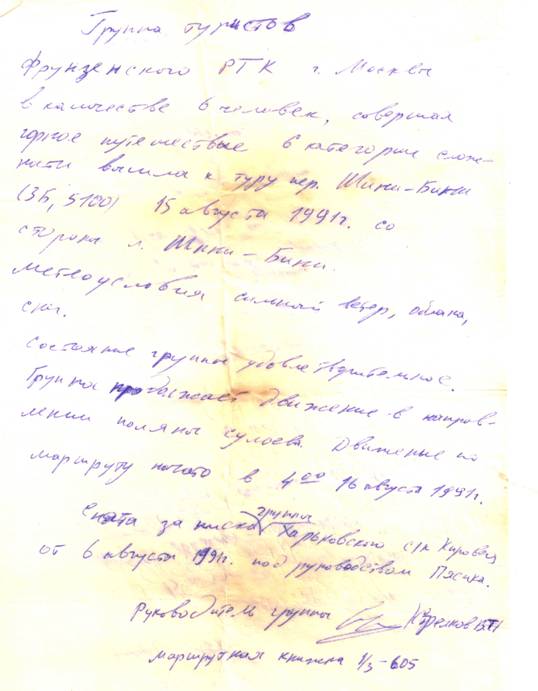 Группа туристов
Фрунзенского РТК г. Москвы
в количестве 6 человек, совершая
горное путешествие 6 категории слож-
ности вышла к туру пер. Шини-Бини
(3Б, 5100) 15 августа 1991г. со
стороны л. Шини-Бини.
Метеоусловия сильный ветер, облака,
снег.
Состояние группы удовлетворительное.
Группа продолжает движение в направ-
лении поляны Сулоева. Движение по
маршруту начато в 4⁰⁰ 16 августа 1991г.
Снята записка группы Харьковского с/к
от 6 августа 1991г. под руководством Пясика.
Руководитель группы
Маршрутная книжка 1/3-605